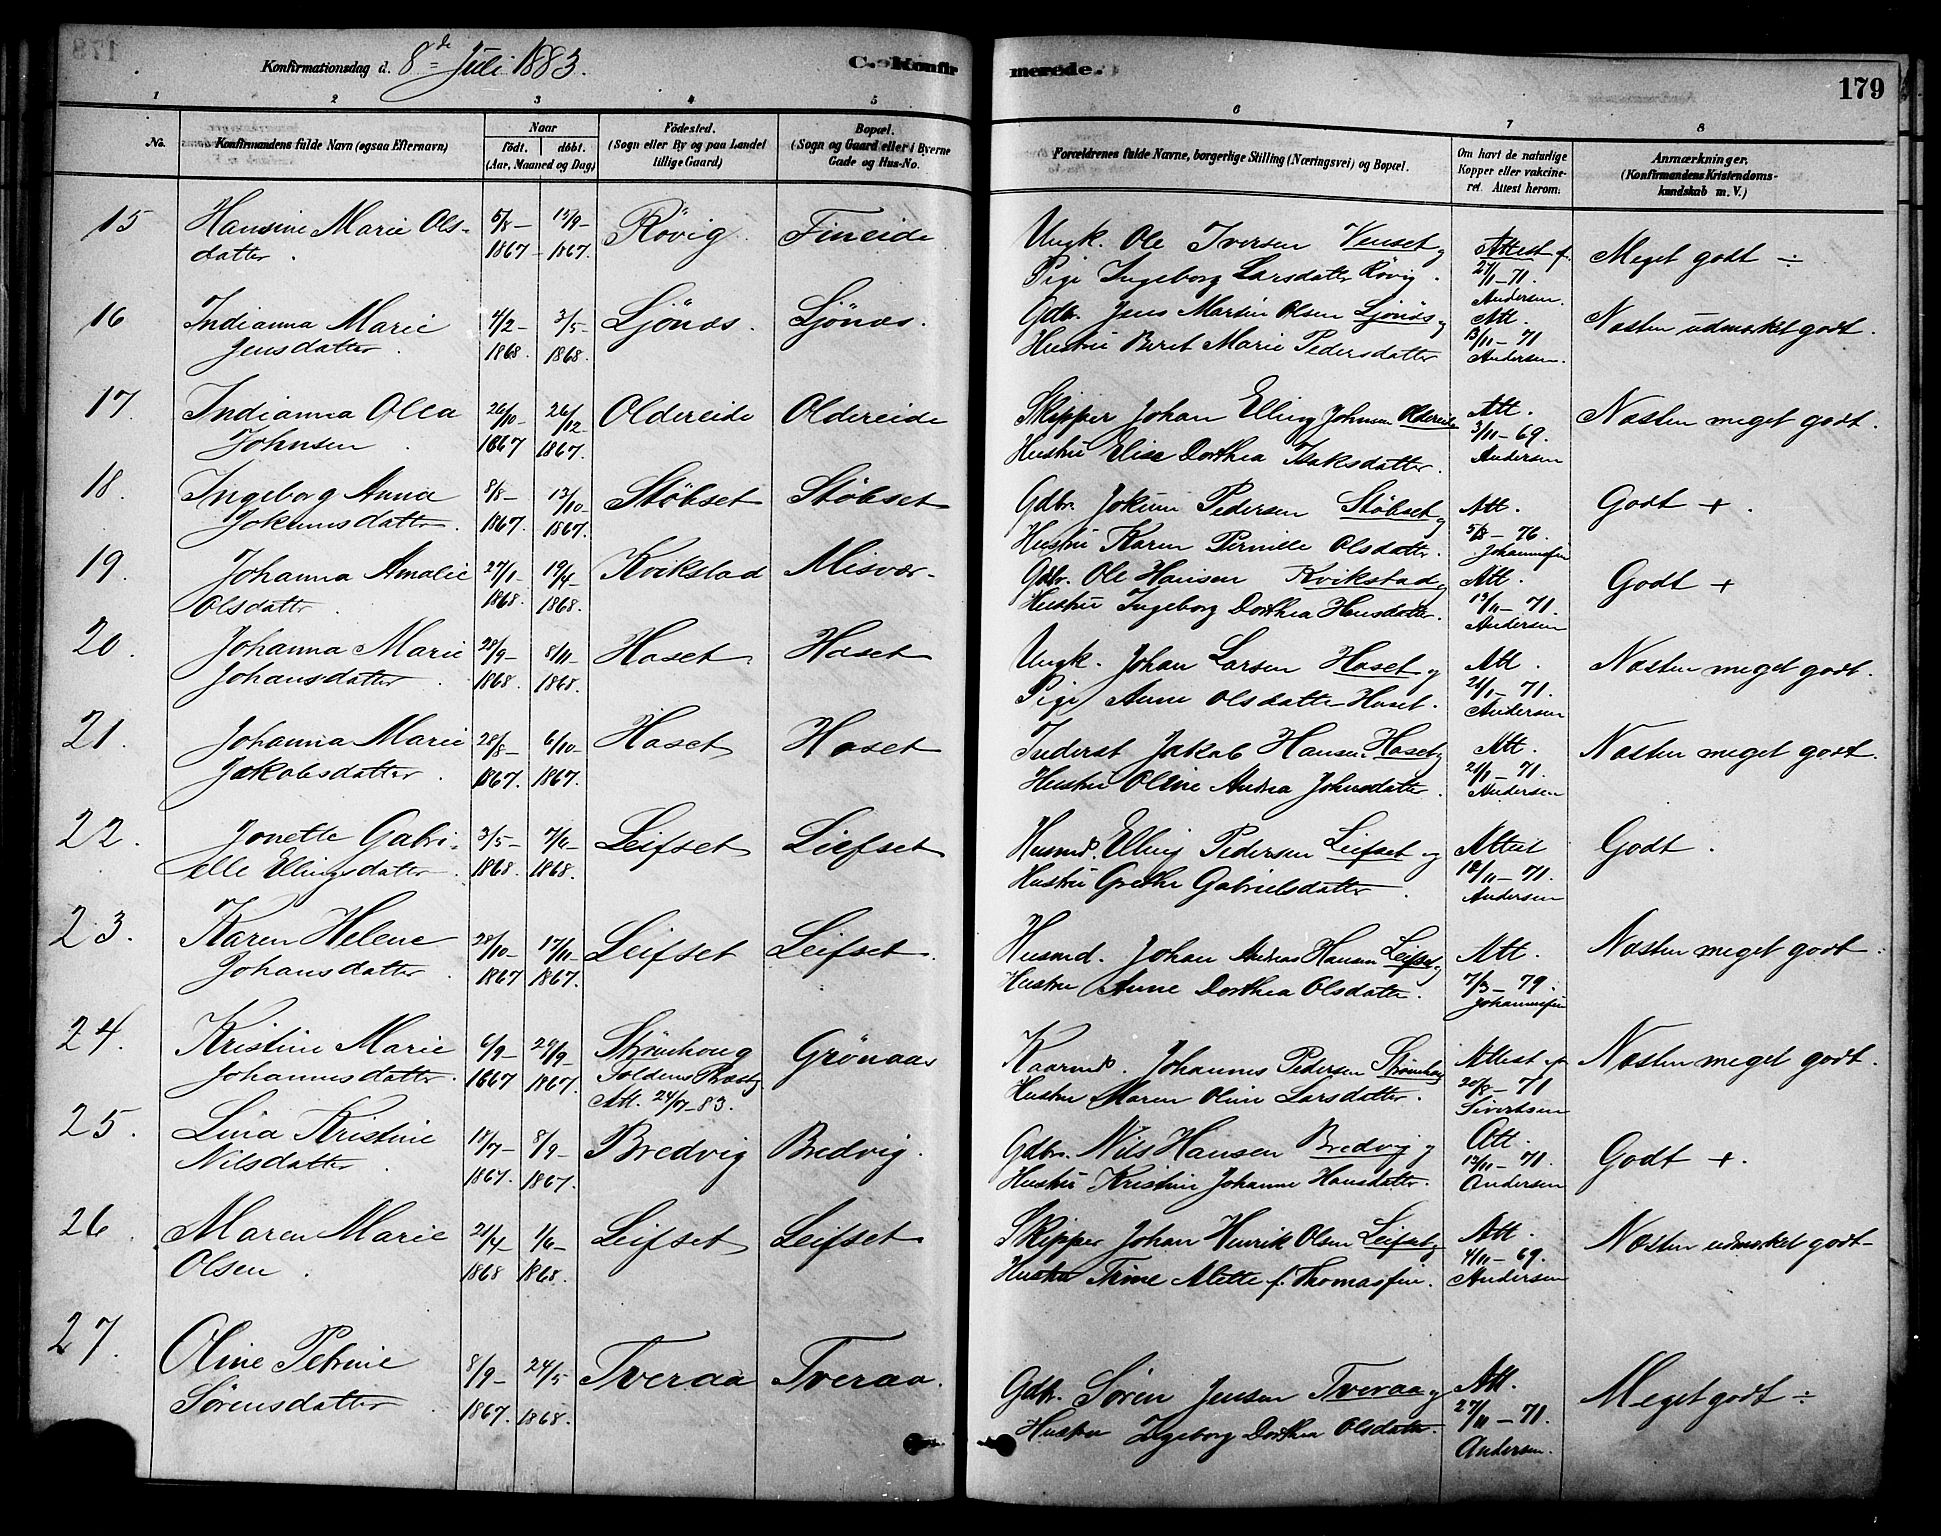 Konfirmationsdag d. 8de Juli 1883.
C. Konfirmerede.
179
1 2 3 4 5 6 7 8
No.
Konfirmandens fulde Navn (ogsaa Efternavn)
Naar
födt. döbt.
(Aar, Maaned og Dag)
Födested.
(Sogn eller By og paa Landet
tillige Gaard)
Bopæl.
(Sogn og Gaard eller i Byerne
Gade og Hus-No.
Forældrenes fulde Navne, borgerlige Stilling (Næringsvei) og Bopæl.
Om havt de naturlige
Kopper eller vakcine-
ret. Attest herom.
Anmærkninger.
(Konfirmandens Kristendoms-
kundskab m. V.)
15 Hansine Marie Ols- 5/8- 15/9- Rövig. Fineide Ungk. Ole Iversen Venset og Attest f. Meget godt ÷
datter. 1867- 1867. Pige Ingeborg Larsdatter Rövig. 27/1-71. Andersen.
16 Indianna Marie 4/2- 3/5- Ljönæs. Ljönæs. Gdbr. Jens Martin Olsen Ljönæs og Att. Næsten udmærket godt.
Jensdatter. 1868. 1868. Hustru Beret Marie Pedersdatter 13/11-71 Andersen.
17. Indianna Olea 26/10- 26/12 Oldereide Oldereide Skipper Johan Elling Johnsen Oldereide Att. Næsten meget godt.
Johnsen. 1867 1867. Hustru Elise Dorthea Isaksdatter. 3/11-69. Andersen
18. Ingeborg Anna 8/8- 13/10- Stöbset Stöbset Gdbr. Jokum Pedersen Stöbset og Att. Godt +.
Jokumsdatter. 1867. 1867. Hustru Karen Pernille Olsdatter. 5/8-76. Johannesen
19. Johanna Amalie 27/1- 19/4- Kvikstad Misvær. Gdbr. Ole Hansen Kvikstad og Att. Godt +
Olsdatter. 1868. 1868. Hustru Ingeborg Dorthea Hansdatter. 13/11-71. Andersen
20. Johanna Marie 28/9- 8/11- Haset. Haset Ungk. Johan Larsen Haset og Att. Næsten meget godt.
Johansdatter. 1868. 1868. Pige Anne Olsdatter Haset. 21/1-71. Andersen
21. Johanna Marie 28/8- 6/10- Haset Haset Inderst Jakob Hansen Haset og Att. Næsten meget godt.
Jakobsdatter. 1867. 1867. Hustru Oline Andrea Johnsdatter. 21/1-71. Andersen
22. Jonette Gabri- 3/5- 7/6- Leifset Leifset Husmd. Elling Pedersen Leifset og Attest Godt.
elle Ellingsdatter. 1868. 1868. Hustru Grethe Gabrielsdatter. 12/11-71. Andersen
23. Karen Helene 28/10- 17/11- Leifset Leifset. Husmd. Johan Andreas Hansen Leifset og Att. Næsten meget godt.
Johansdatter. 1867 1867. Hustru Anne Dorthea Olsdatter. 7/3-79. Johannesen
24. Kristine Marie 6/9- 29/9- Strömhoug Grönaas Kaarmd. Johannes Pedersen Strömhoug Attest f. Næsten meget godt.
Johannesdatter. 1867 1867. Att. 24/7-83. Hustru Maren Oline Larsdatter. 20/8-71 Sivertsen
25. Lina Kristine 18/7- 8/9- Bredvig Bredvig. Gdbr. Nils Hansen Bredvig og Att. Godt +.
Nilsdatter. 1867. 1867. Hustru Kristine Johanne Hansdatter. 12/11-71. Andersen
26. Maren Marie 21/4 1/6- Leifset Leifset Skipper Johan Henrik Olsen Leifset og Att. Næsten udmærket godt-
Olsen. 1868 1868. Hustru Trine Alette f. Thomasen. 4/11-69. Andersen
27. Oline Petrine 8/9- 24/5 Tveraa Tveraa. Gdbr. Sören Jensen Tveraa og Att. Meget godt ÷
Sörensdatter. 1867. 1868. Hustru Ingeborg Dorthea Olsdatter. 27/11-71. Andersen.